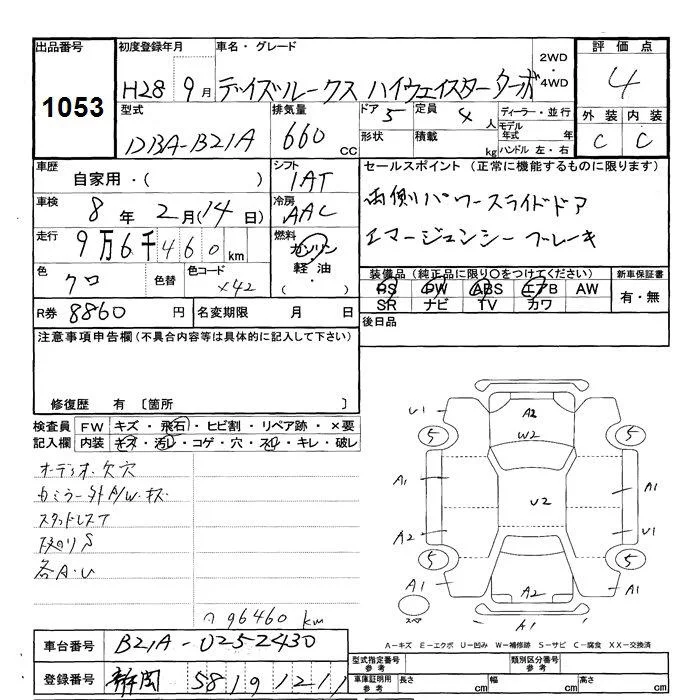 出品番号 初度登録年月 車名・グレード 評価点
1053 H28 9月 デイズルークス ハイウェイスターターボ 2WD・4WD 4
型式 排気量 ドア 5 定員 4人 ディーラー・並行 外装 内装
DBA-B21A 660 CC 形状 積載 kg モデル年式 年 ハンドル 左・右 C C
車歴 シフト セールスポイント (正常に機能するものに限ります)
自家用・( ) IAT 両側パワースライドドア
車検 8年 2月(14日) 冷房 AAC エマージェンシーブレーキ
走行 9万6千460km 燃料 ガソリン 軽油・( )
色 クロ 色替 色コード X42
装備品 (純正品に限り○をつけてください) 新車保証書
PS PW ABS エアB AW 有・無
SR ナビ TV カワ
R券 8860円 名変期限 月 日 後日品
注意事項申告欄 (不具合内容等は具体的に記入して下さい)
修復歴 有 〔箇所 〕
検査員記入欄 FW キズ・飛石・ヒビ割・リペア跡・×要
内装 キズ・汚レ・コゲ・穴・スレ・キレ・破レ
オーディオ欠穴
カミラー外A/Wキズ
スタッドレスT
各A・U
96460 km
U1 A2 W2 5 5
A1 U2 A1
A2 U1
5 5
A1 A2 A1
スペア A1
A-キズ E-エクボ U-凹み W-補修跡 S-サビ C-腐食 XX-交換済
車台番号 B21A-0252430
型式指定番号 参考 類別区分番号 参考
登録番号 静岡 581 す 1211
車庫証明用 参考 長さ cm 幅 cm 高さ cm